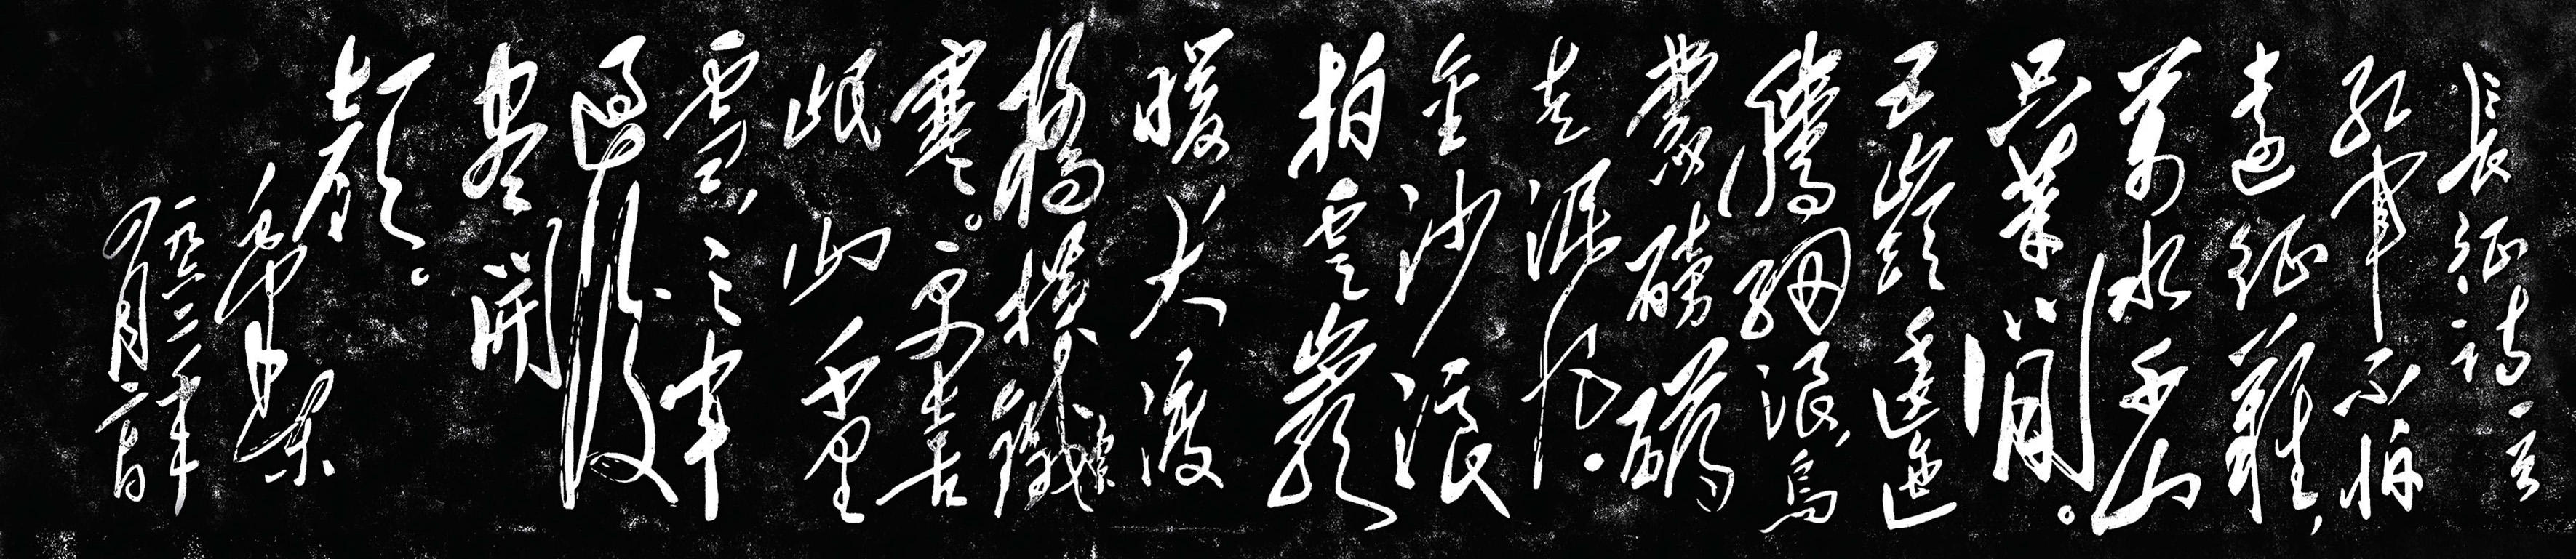 長征詩一首
紅軍不怕
遠征難，
萬水千山
只等閒。
五嶺逶迤
騰細浪，烏
蒙磅礴
走泥丸。
金沙浪
拍雲崖
暖大渡
橋橫鐵索
寒。更喜
岷山千里
雪，三軍
過後
盡開
顏。
毛澤東
一九六二年
四月二十日